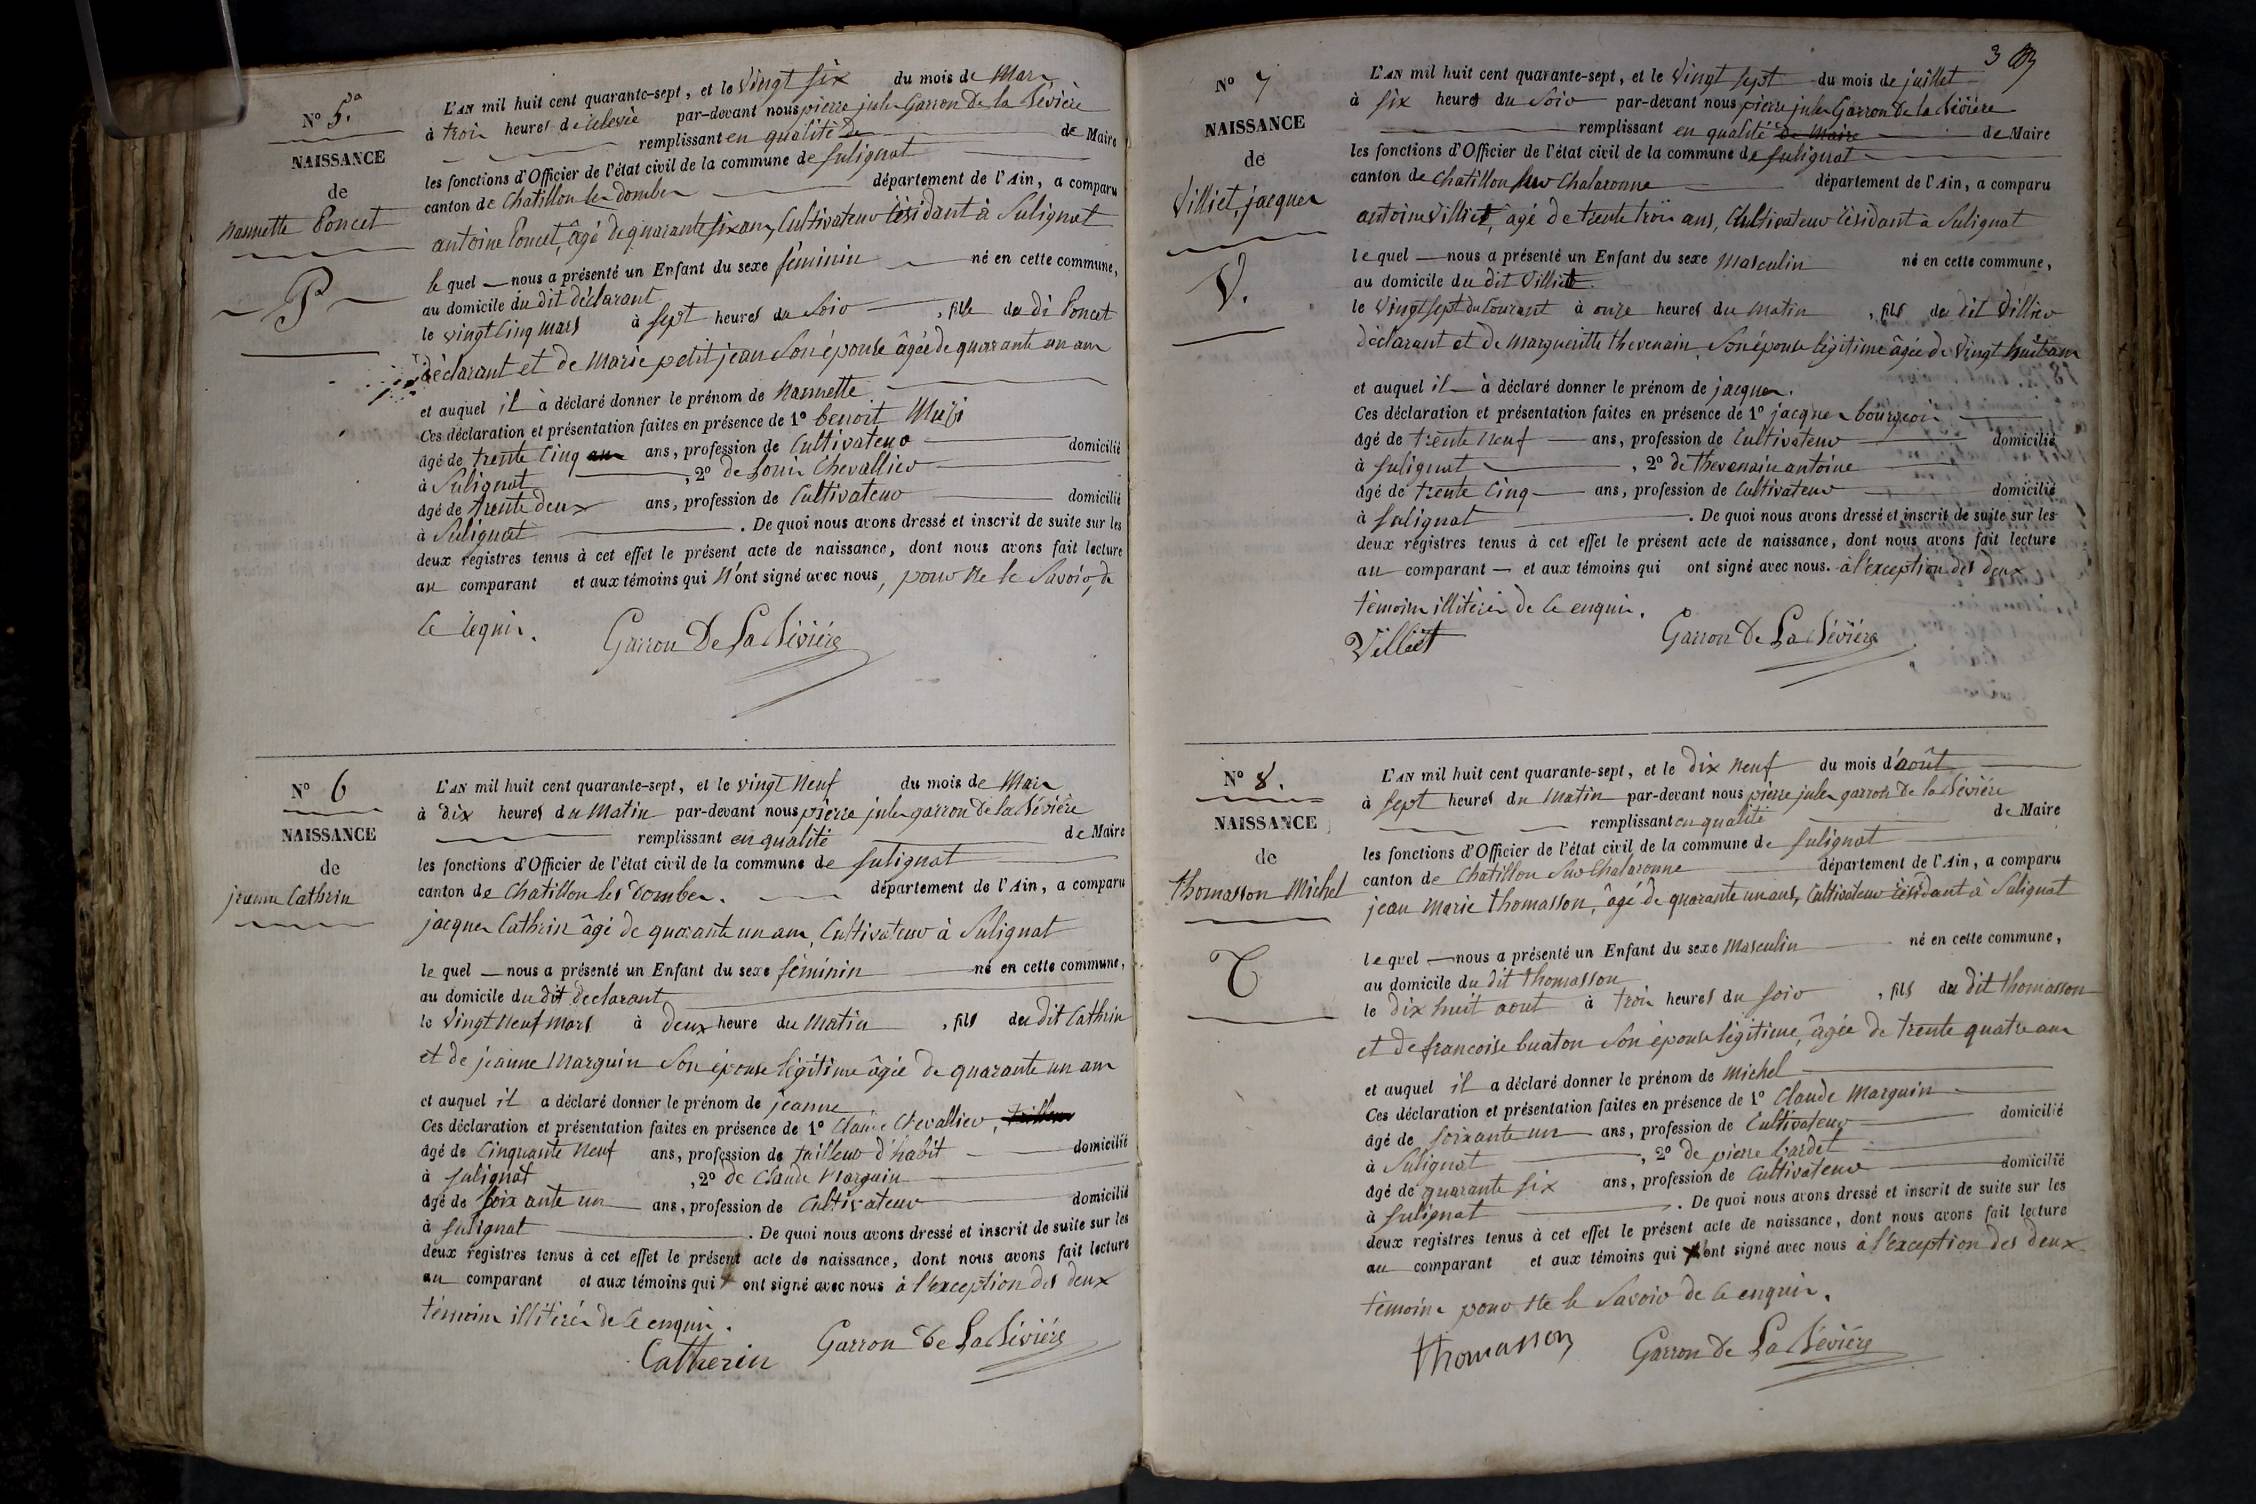 N° 5.
NAISSANCE
de
Nannette Poncet
P
L'AN mil huit cent quarante-sept, et le vingt six du mois de Mars
à trois heures de relevée par-devant nous pierre jules Garron De la Bévière
remplissant en qualité de de Maire
les fonctions d'Officier de l'état civil de la commune de Sulignat
canton de Chatillon les dombes département de l'Ain, a comparu
antoine Poncet, âgé de quarante six ans, Cultivateur résidant à Sulignat
le quel nous a présenté un Enfant du sexe féminin né en cette commune,
au domicile du dit déclarant
le vingt cinq mars à sept heures du Soir, fille du di Poncet
déclarant et de Marie petit jean Son épouse âgée de quarante un ans
et auquel il a déclaré donner le prénom de Nannette
Ces déclaration et présentation faites en présence de 1° benoit
âgé de trente cinq ans, profession de Cultivateur domicilié
à Sulignat, 2° de Louis Chevallier
âgé de trente deux ans, profession de Cultivateur domicilié
à Sulignat. De quoi nous avons dressé et inscrit de suite sur les
deux registres tenus à cet effet le présent acte de naissance, dont nous avons fait lecture
au comparant et aux témoins qui n'ont signé avec nous, pour ne le Savoir, de
ce requis.
Garron De La Bévière
N° 6
NAISSANCE
de
jeanne Cathrin
L'AN mil huit cent quarante-sept, et le vingt Neuf du mois de Mars
à dix heures du Matin par-devant nous pierre jules garron de la Bévière
remplissant en qualité de Maire
les fonctions d'Officier de l'état civil de la commune de Sulignat
canton de Chatillon les Dombes. département de l'Ain, a comparu
jacques Cathrin âgé de quarante un ans, Cultivateur à Sulignat
le quel nous a présenté un Enfant du sexe féminin né en cette commune,
au domicile du dit declarant
le vingt Neuf mars à deux heure du Matin, fils du dit Cathrin
et de jeanne Marguin Son épouse légitime âgée de quarante un ans
et auquel il a déclaré donner le prénom de jeanne
Ces déclaration et présentation faites en présence de 1° Claude Chevallier, tailleur
âgé de Cinquante Neuf ans, profession de tailleur d'habit domicilié
à Sulignat, 2° de Claude Marguin
âgé de Soixante un ans, profession de Cultivateur domicilié
à Sulignat. De quoi nous avons dressé et inscrit de suite sur les
deux registres tenus à cet effet le présent acte de naissance, dont nous avons fait lecture
au comparant et aux témoins qui ont signé avec nous à l'exception des deux
témoins illitérés de ce enquis.
Catherin Garron De La Bévière
3
N° 7
NAISSANCE
de
Villiet, jacques
V.
L'AN mil huit cent quarante-sept, et le Vingt sept du mois de juillet
à six heures du Soir par-devant nous pierre jules Garron De la Bévière
remplissant en qualité de Maire de Maire
les fonctions d'Officier de l'état civil de la commune de Sulignat
canton de Chatillon sur Chalaronne département de l'Ain, a comparu
antoine Villiet, agé de trente trois ans, Cultivateur résidant à Sulignat
le quel nous a présenté un Enfant du sexe Masculin né en cette commune,
au domicile du dit Villiet.
le Vingt sept du Courant à onze heures du Matin, fils du dit Villier
déclarant et de Margueritte thevenain, Son épouse légitime âgée de Vingt huit ans
et auquel il à déclaré donner le prénom de jacques.
Ces déclaration et présentation faites en présence de 1° jacques bourgeois
âgé de trente Neuf ans, profession de Cultivateur domicilié
à Sulignat, 2° de thevenain antoine
âgé de trente Cinq ans, profession de Cultivateur domicilié
à Sulignat. De quoi nous avons dressé et inscrit de suite sur les
deux registres tenus à cet effet le présent acte de naissance, dont nous avons fait lecture
au comparant et aux témoins qui ont signé avec nous. à l'exception des deux
témoins illitérés de ce enquis.
Villiet Garron De La Bévière
N° 8.
NAISSANCE
de
thomasson Michel
T
L'AN mil huit cent quarante-sept, et le dix neuf du mois d'août
à sept heures du Matin par-devant nous pierre jules garron De la Bévière
remplissant en qualité de Maire
les fonctions d'Officier de l'état civil de la commune de Sulignat
canton de Chatillon Sur Chalaronne département de l'Ain, a comparu
jean Marie thomasson, âgé de quarante un ans, Cultivateur résidant à Sulignat
le quel nous a présenté un Enfant du sexe Masculin né en cette commune,
au domicile du dit thomasson
le dix huit aout à trois heures du soir, fils du dit thomasson
et de francoise buaton Son épouse légitime, âgée de trente quatre ans
et auquel il a déclaré donner le prénom de Michel
Ces déclaration et présentation faites en présence de 1° Claude Marguin
âgé de soixante un ans, profession de Cultivateur domicilié
à Sulignat, 2° de pierre bardet
âgé de quarante six ans, profession de Cultivateur domicilié
à Sulignat. De quoi nous avons dressé et inscrit de suite sur les
deux registres tenus à cet effet le présent acte de naissance, dont nous avons fait lecture
au comparant et aux témoins qui ont signé avec nous à l'exception des deux
témoins pour ne le Savoir de ce enquis.
thomasson Garron De La Bévière